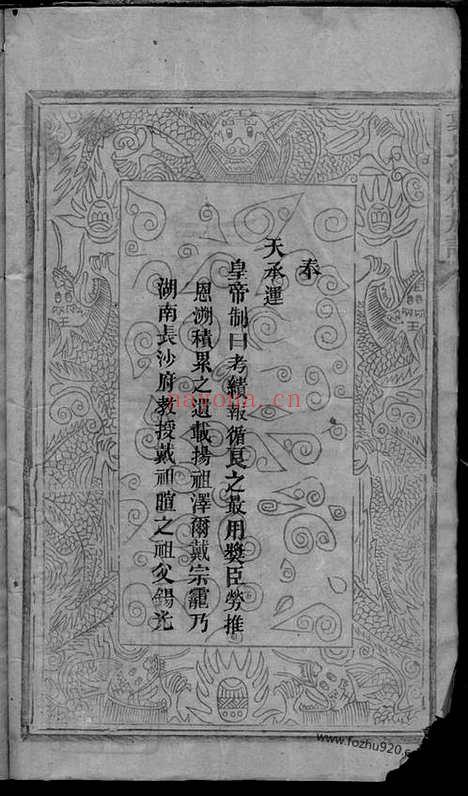 奉
天承運
皇帝制曰考績報循良之最用獎臣勞推
恩溯積累之遺載揚祖澤爾戴宗霳乃
湖南長沙府教授戴祖暄之祖父錫光
nayona.cn
www.fozhu920.com